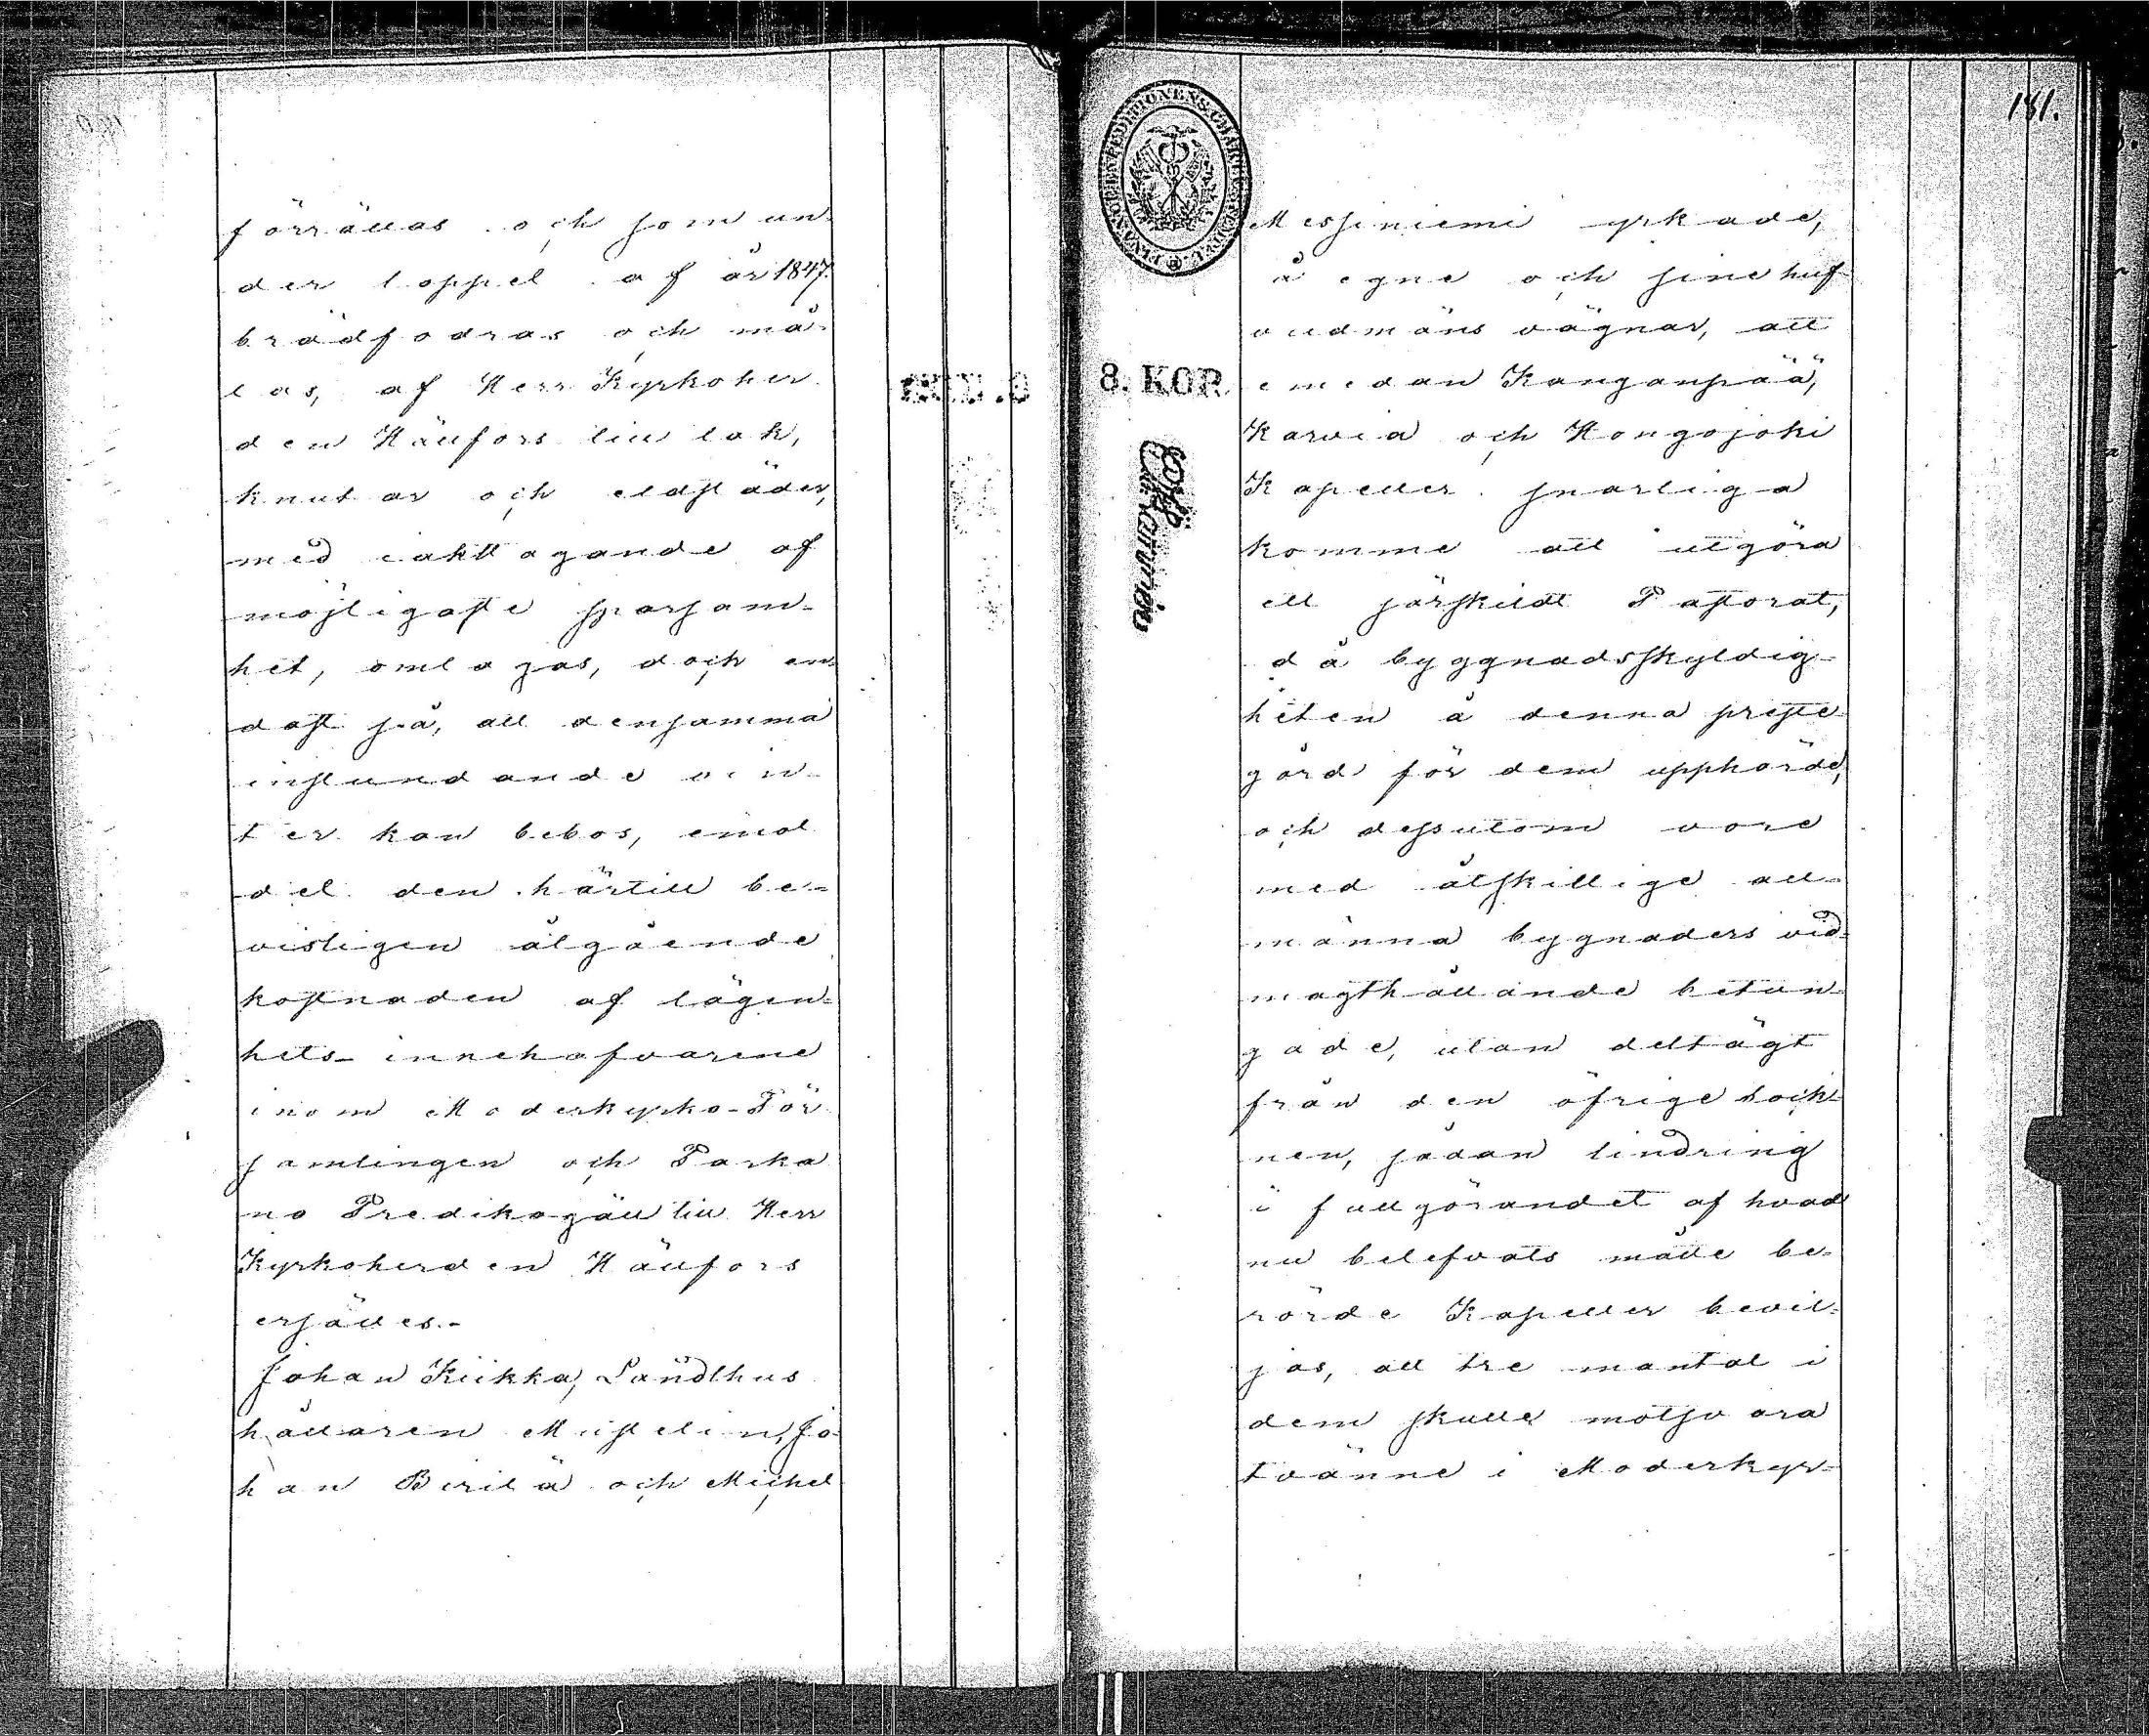 förrättas och som un-
der loppet af år 1847.
brädfodras och må-
las, af Herr Kyrkoher
den Hällfors till tak,
knutar och eldstäder,
med iakttagande af
möjligaste sparsam-
het, omlagas, doch en-
dast så, att densamma
instundande vin-
ter kan bebos, emot
det den härtill be-
visligen åtgående
kostnaden af lägen-
hets-innehafvarene
inom Moderkyrko-För
samlingen och Parka
no Predikogäll till Herr
Kyrkoherden Hällfors
ersättes.-
Johan Kiikka, Landthus
hållaren Mustelin, Jo-
han Birilä och Michel
181.
8. KOP.
Messiniemi yrkade,
å egne och sine huf
vudmäns vägnar, att
emedan Kanganpää,
Karvia och Hongojoki
Kapeller snarliga
komme att utgöra
ett särskildt Pastorat,
då byggnadsskyldig-
heten å denna preste
gård för dem upphörde,
och dessutom vore
med åtskillige all-
männa bygnaders vid-
magthållande betun-
gade, utan deltägt
från den öfrige sock-
nen, sådan lindring
i fullgörandet af hvad
nu belefvats måtte be-
rörde Kapeller bevil-
jas, att tre mantal i
dem skulle motsvara
tvänne i Moderkyr-